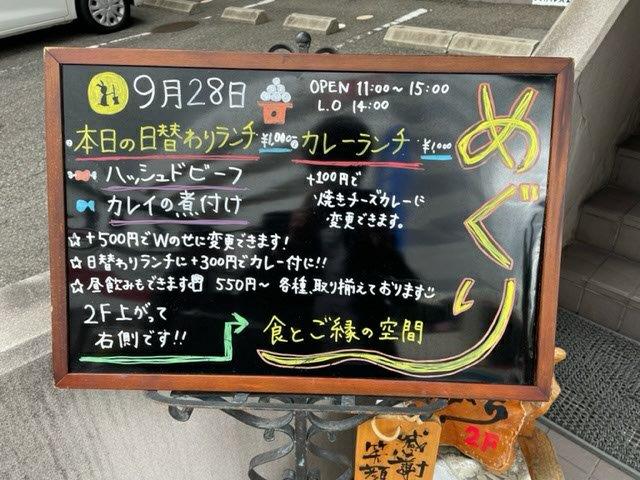 9月28日
OPEN 11:00～15:00
L.O 14:00
めぐり
本日の日替わりランチ ¥1,000
ハッシュドビーフ
カレイの煮付け
カレーランチ ¥1,000
+100円で
焼きチーズカレーに
変更できます。
☆+500円でWのせに変更できます!
☆日替わりランチに+300円でカレー付に!!
☆昼飲みもできます 550円～ 各種、取り揃えております
2F上がって
右側です!!
食とご縁の空間
2F
感謝
笑顔